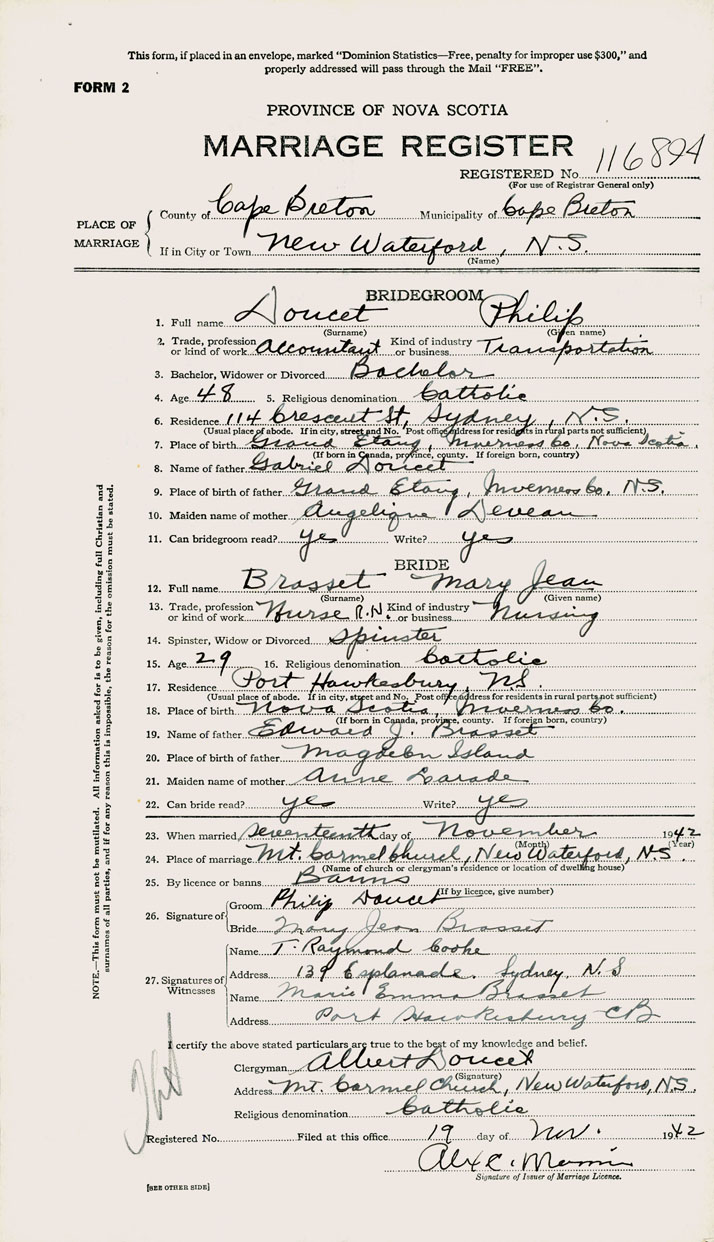 This form, if placed in an envelope, marked "Dominion Statistics—Free, penalty for improper use $300," and
properly addressed will pass through the Mail "FREE".
FORM 2
PROVINCE OF NOVA SCOTIA
MARRIAGE REGISTER
REGISTERED No. 116894
(For use of Registrar General only)
PLACE OF MARRIAGE
County of Cape Breton Municipality of Cape Breton
If in City or Town New Waterford, N.S.
(Name)
BRIDEGROOM
1. Full name Doucet Philip
(Surname) (Given name)
2. Trade, profession or kind of work Accountant Kind of industry or business Transportation
3. Bachelor, Widower or Divorced Bachelor
4. Age 48 5. Religious denomination Catholic
6. Residence 114 Crescent St, Sydney, N.S.
(Usual place of abode. If in city, street and No. Post office address for residents in rural parts not sufficient)
7. Place of birth Grand Etang, Inverness Co. Nova Scotia.
(If born in Canada, province, county. If foreign born, country)
8. Name of father Gabriel Doucet
9. Place of birth of father Grand Etang, Inverness Co. N.S.
10. Maiden name of mother Angelique Deveau
11. Can bridegroom read? yes Write? yes
BRIDE
12. Full name Brasset Mary Jean
(Surname) (Given name)
13. Trade, profession or kind of work Nurse R.N. Kind of industry or business Nursing
14. Spinster, Widow or Divorced Spinster
15. Age 29 16. Religious denomination Catholic
17. Residence Port Hawkesbury, N.S.
(Usual place of abode. If in city, street and No. Post office address for residents in rural parts not sufficient)
18. Place of birth Nova Scotia, Inverness Co.
(If born in Canada, province, county. If foreign born, country)
19. Name of father Edward J. Brasset
20. Place of birth of father Magdeln Island
21. Maiden name of mother Anne Larade
22. Can bride read? yes Write? yes
23. When married seventeenth day of November 1942
(Month) (Year)
24. Place of marriage Mt. Carmel Church, New Waterford, N.S.
(Name of church or clergyman's residence or location of dwelling house)
25. By licence or banns Banns
(If by licence, give number)
26. Signature of
Groom Philip Doucet
Bride Mary Jean Brasset
27. Signatures of Witnesses
Name T. Raymond Cooke
Address 139 Esplanade. Sydney. N.S
Name Marie Emma Brasset
Address Port Hawkesbury CB
I certify the above stated particulars are true to the best of my knowledge and belief.
Clergyman Albert Doucet
(Signature)
Address Mt. Carmel Church, New Waterford, N.S.
Religious denomination Catholic
Registered No. Filed at this office 19 day of Nov. 1942
Signature of Issuer of Marriage Licence.
[SEE OTHER SIDE]
NOTE.—This form must not be mutilated. All information asked for is to be given, including full Christian and
surnames of all parties, and if for any reason this is impossible, the reason for the omission must be stated.